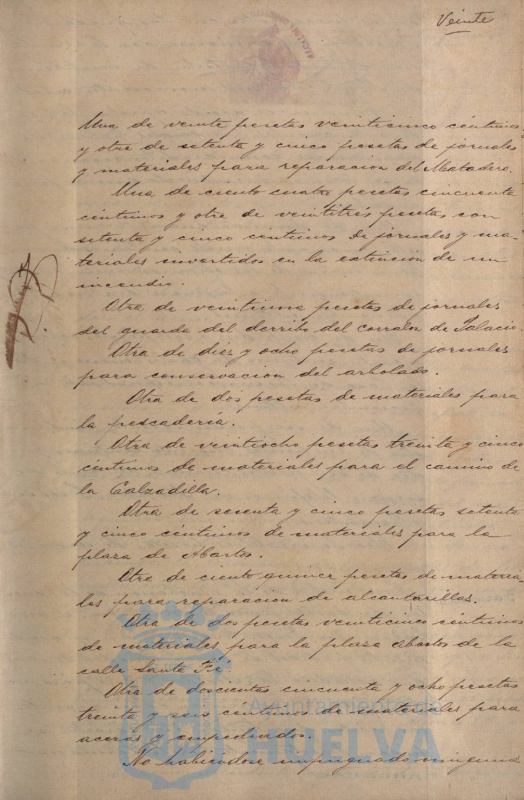 Veinte
Una de veinte pesetas veinticinco céntimos
y otra de setenta y cinco pesetas de jornales
y materiales para reparacion del Matadero.
Una de ciento cuatro pesetas cincuenta
céntimos y otra de veintitrés pesetas con
setenta y cinco centimos de jornales y ma-
teriales invertidos en la extincion de un
incendio.
Otra de veintiuna pesetas de jornales
del guarda del derribo del corralon de Palacio.
Otra de diez y ocho pesetas de jornales
para conservacion del arbolado.
Otra de dos pesetas de materiales para
la pescadería.
Otra de veintiocho pesetas treinta y cinco
céntimos de materiales para el camino de
la Calzadilla.
Otra de sesenta y cinco pesetas setenta
y cinco céntimos de materiales para la
plaza de Abastos.
Otra de ciento quince pesetas de materia-
les para reparacion de alcantarillas.
Otra de dos pesetas veinticinco centimos
de materiales para la plaza Abastos de la
calle Santa Fé.
Otra de doscientas cincuenta y ocho pesetas
treinta y seis centimos de materiales para
aceras y empedrados.
No habiendose impugnado ninguna
Ayuntamiento de
HUELVA